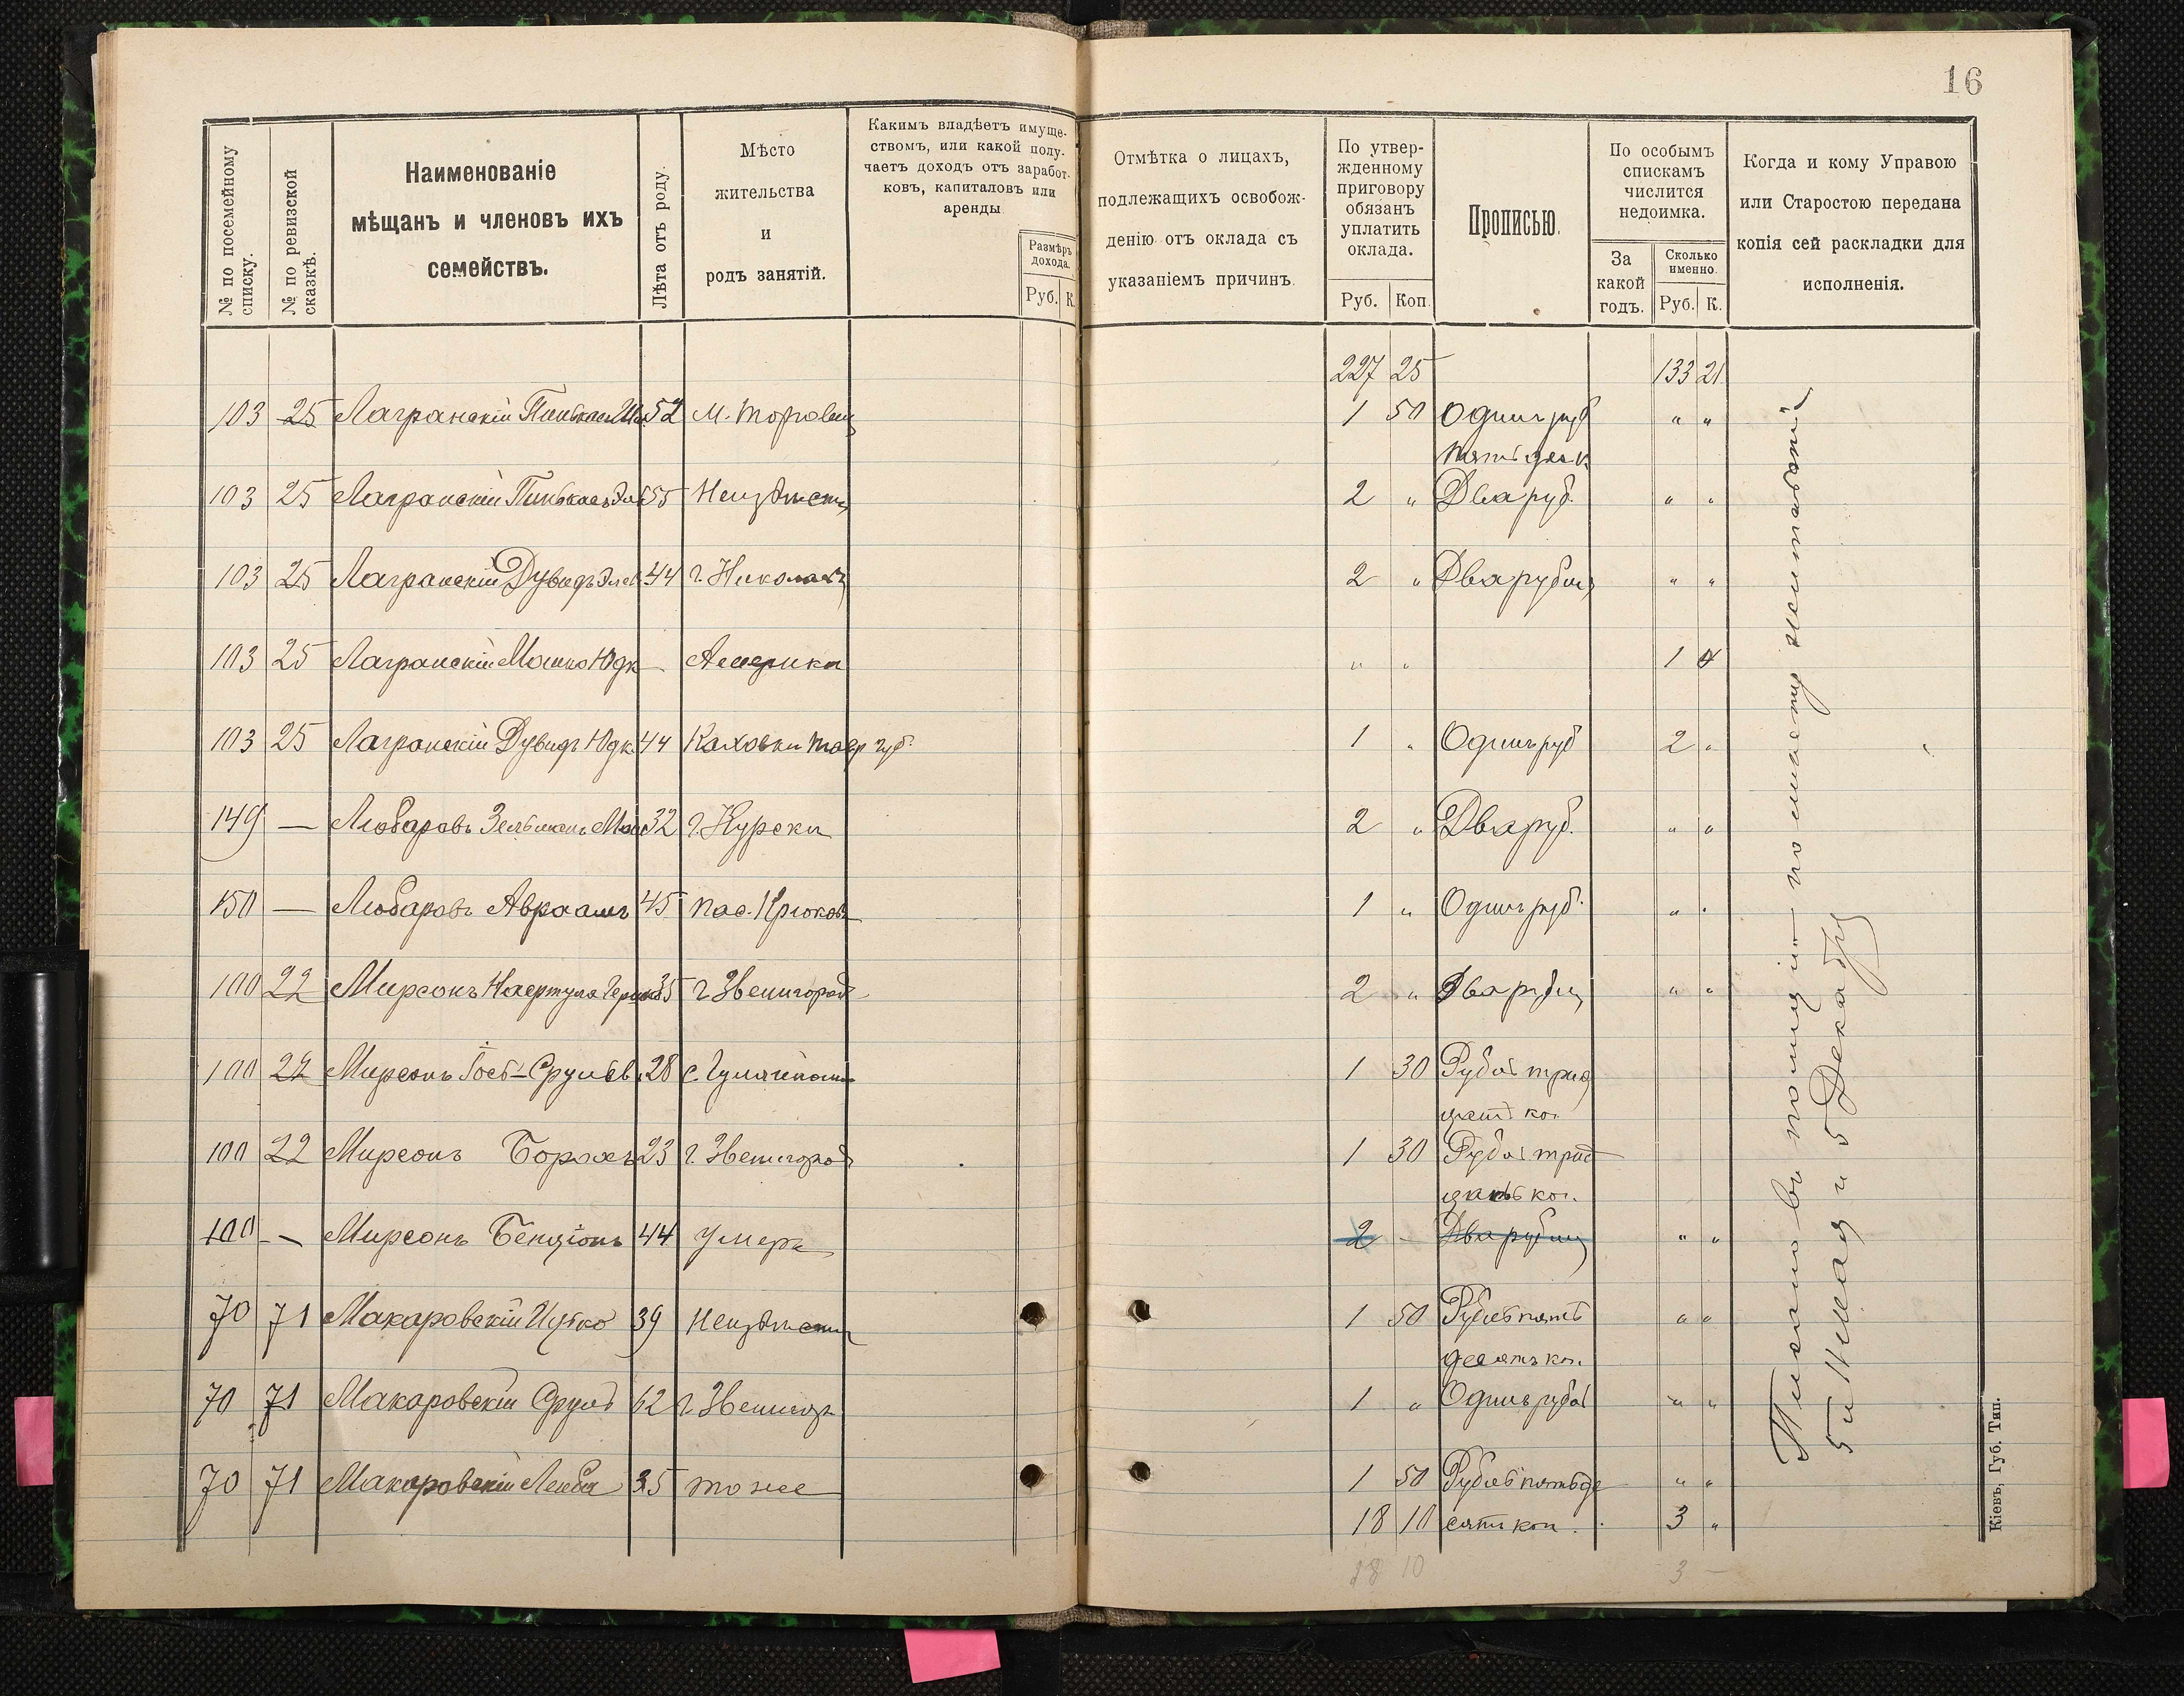 16
№ по посемейному списку.
№ по ревизской сказкѣ.
Наименованіе
мѣщанъ и членовъ ихъ
семействъ.
Лѣта отъ роду.
Мѣсто
жительства
и
родъ занятій.
Какимъ владѣетъ имуще-
ствомъ, или какой полу-
чаетъ доходъ отъ заработ-
ковъ, капиталовъ или
аренды
Размѣръ
дохода.
Руб. К.
Отмѣтка о лицахъ,
подлежащихъ освобож-
денію отъ оклада съ
указаніемъ причинъ.
По утвер-
жденному
приговору
обязанъ
уплатить
оклада.
Руб. Коп.
Прописью.
По особымъ
спискамъ
числится
недоимка.
За
какой
годъ.
Сколько
именно.
Руб. К.
Когда и кому Управою
или Старостою передана
копія сей раскладки для
исполненія.
227 25 133 21
103 25 Лагранскій Пинькас 52 м. 1 50 Одинъ руб " "
пятьдес к.
103 25 Лагранскій Пинькасъ 55 Неизвѣстн 2 " Два руб. " "
103 25 Лагранскій Дувидъ Элев 44 г. Николаевъ 2 " Два рубля " "
103 25 Лагранскій Мошко Юдк — Америка " " 1 4
103 25 Лагранскій Дувидъ Юдк. 44 Каховки Тавр губ. 1 " Одинъ руб 2 "
149 — Любаровъ Зельманъ Мош 32 г. Курска 2 " Два руб. " "
150 — Любаровъ Авраамъ 45 пос. Крюковъ 1 " Одинъ руб. " "
100 22 Мирсонъ Нафтула 35 г Звенигород 2 " Два рубля " "
100 22 Мирсонъ Іось-Срулев. 28 с. 1 30 Рубль трид
цать ко.
100 22 Мирсонъ Борохъ 23 г. Звенигород 1 30 Рубль трид
цать коп.
100 — Мирсонъ Бенціонъ 44 умеръ 2 - Два рубля " "
70 71 Макаровскій Ицко 39 Неизвѣстн 1 50 Рубль пять
десять коп. " "
70 71 Макаровскій Сруль 62 г. Звенигор 1 " Одинъ рубль " "
70 71 Макаровскій Лейба 35 тоже 1 50 Рубль пятьде " "
18 10 сять коп. 3 "
18 10 3 —
Писано въ полицію по мѣсту жительства
5 и Мая и 5 Декабря
Кіевъ, Губ. Тип.